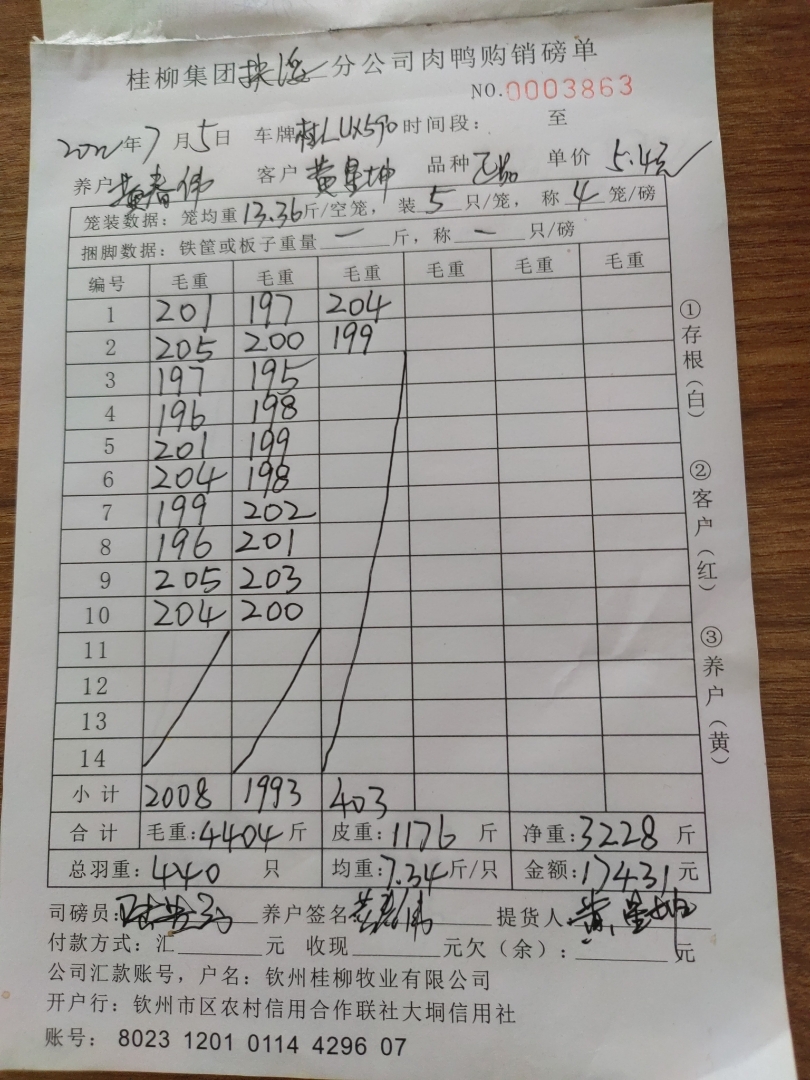 桂柳集团分公司肉鸭购销磅单
NO.0003863
2022年7月5日 车牌桂LUX590 时间段: 至
养户黄春伟 客户黄星坤 品种 单价5.4元
笼装数据: 笼均重13.36斤/空笼, 装5只/笼, 称4笼/磅
捆脚数据: 铁筐或板子重量一斤, 称一只/磅
编号 毛重 毛重 毛重 毛重 毛重 毛重
1 201 197 204
2 205 200 199
3 197 195
4 196 198
5 201 199
6 204 198
7 199 202
8 196 201
9 205 203
10 204 200
11
12
13
14
小计 2008 1993 403
合计 毛重:4404斤 皮重:1176斤 净重:3228斤
总羽重:440只 均重:7.34斤/只 金额:17431元
司磅员: 养户签名黄春伟 提货人黄星坤
付款方式: 汇元 收现元欠(余):元
公司汇款账号, 户名: 钦州桂柳牧业有限公司
开户行: 钦州市区农村信用合作联社大垌信用社
账号: 8023 1201 0114 4296 07
①存根(白) ②客户(红) ③养户(黄)